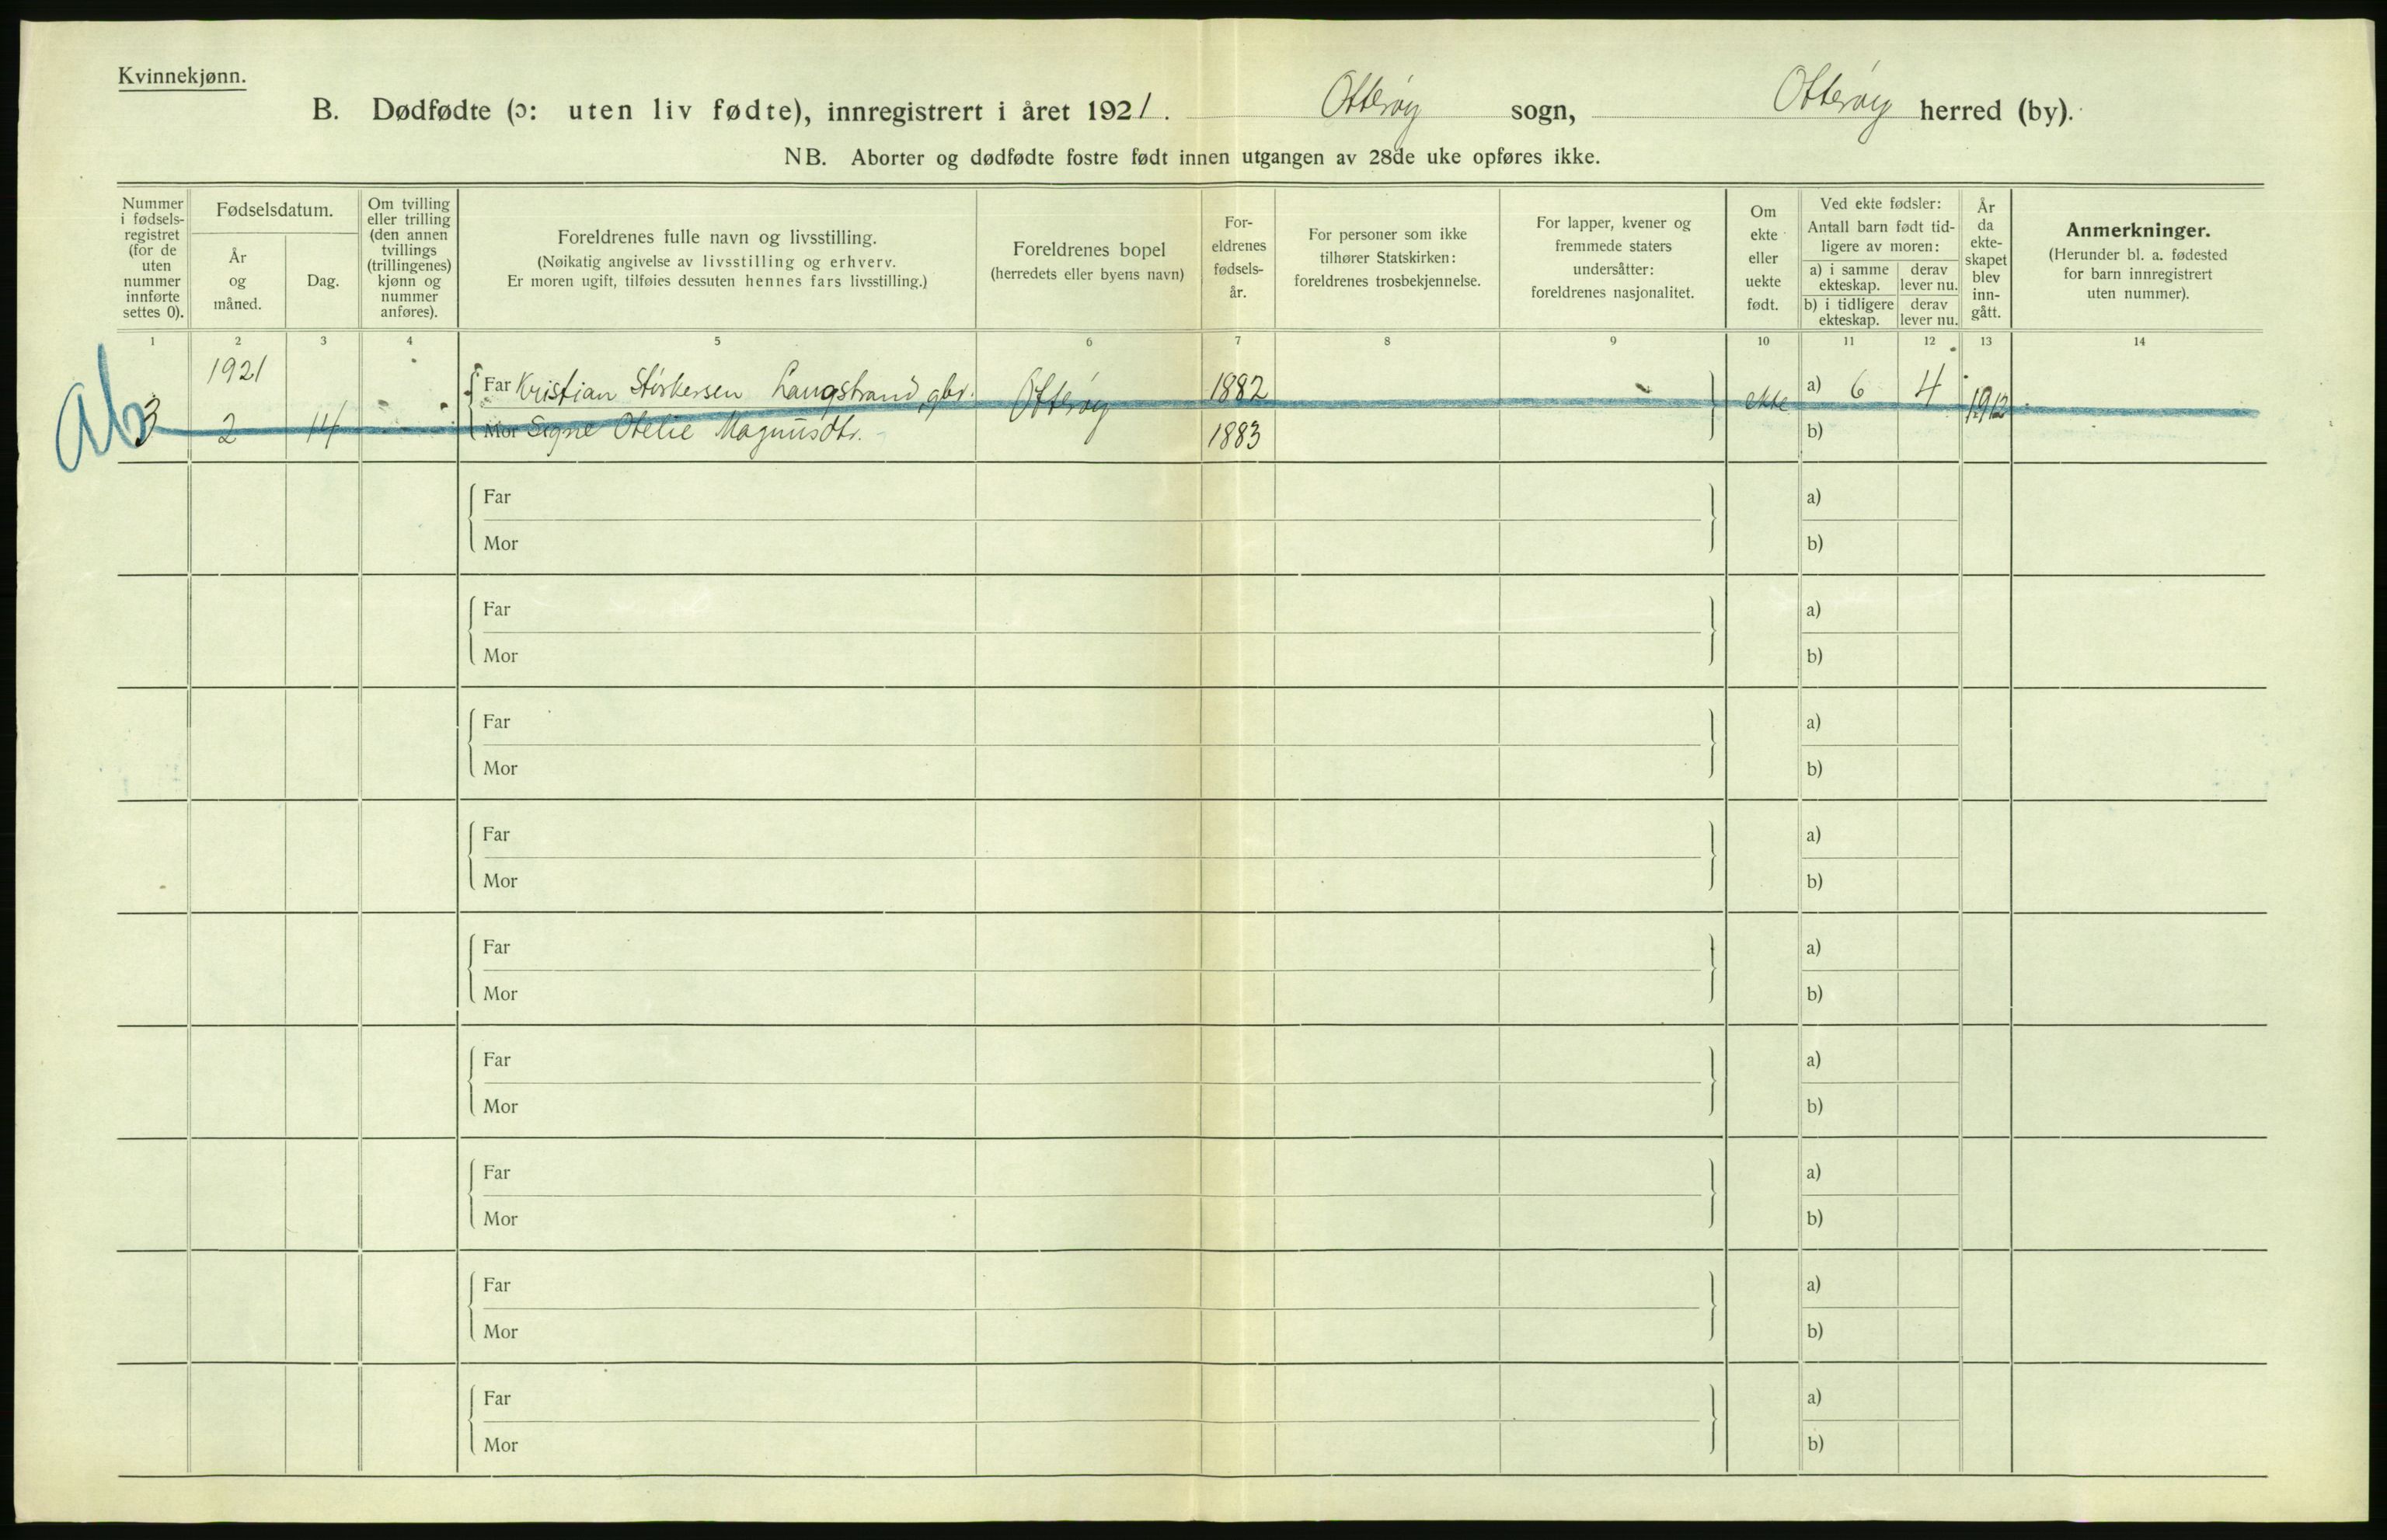 Kvinnekjønn.
B. Dødfødte (ɔ: uten liv fødte), innregistrert i året 1921. Otterøy sogn, Otterøy herred (by).
NB. Aborter og dødfødte fostre født innen utgangen av 28de uke opføres ikke.
Nummer i fødsels-registret (for de uten nummer innførte settes 0).
Fødselsdatum.
År og måned.
Dag.
Om tvilling eller trilling (den annen tvillings (trillingenes) kjønn og nummer anføres).
Foreldrenes fulle navn og livsstilling.
(Nøikatig angivelse av livsstilling og erhverv.
Er moren ugift, tilføies dessuten hennes fars livsstilling.)
Foreldrenes bopel
(herredets eller byens navn)
For-eldrenes fødsels-år.
For personer som ikke tilhører Statskirken: foreldrenes trosbekjennelse.
For lapper, kvener og fremmede staters undersåtter: foreldrenes nasjonalitet.
Om ekte eller uekte født.
Ved ekte fødsler:
Antall barn født tid-ligere av moren:
a) i samme ekteskap.
derav lever nu.
b) i tidligere ekteskap.
derav lever nu.
År da ekte-skapet blev inn-gått.
Anmerkninger.
(Herunder bl. a. fødested for barn innregistrert uten nummer).
1 2 3 4 5 6 7 8 9 10 11 12 13 14
1921
Far Kristian Størkersen Langstrand, gbr. Otterøy 1882 ekte a) 6 4 1912
Ab 3 2 14 Mor Signe Otelie Magnusdtr. 1883 b)
Far a)
Mor b)
Far a)
Mor b)
Far a)
Mor b)
Far a)
Mor b)
Far a)
Mor b)
Far a)
Mor b)
Far a)
Mor b)
Far a)
Mor b)
Far a)
Mor b)